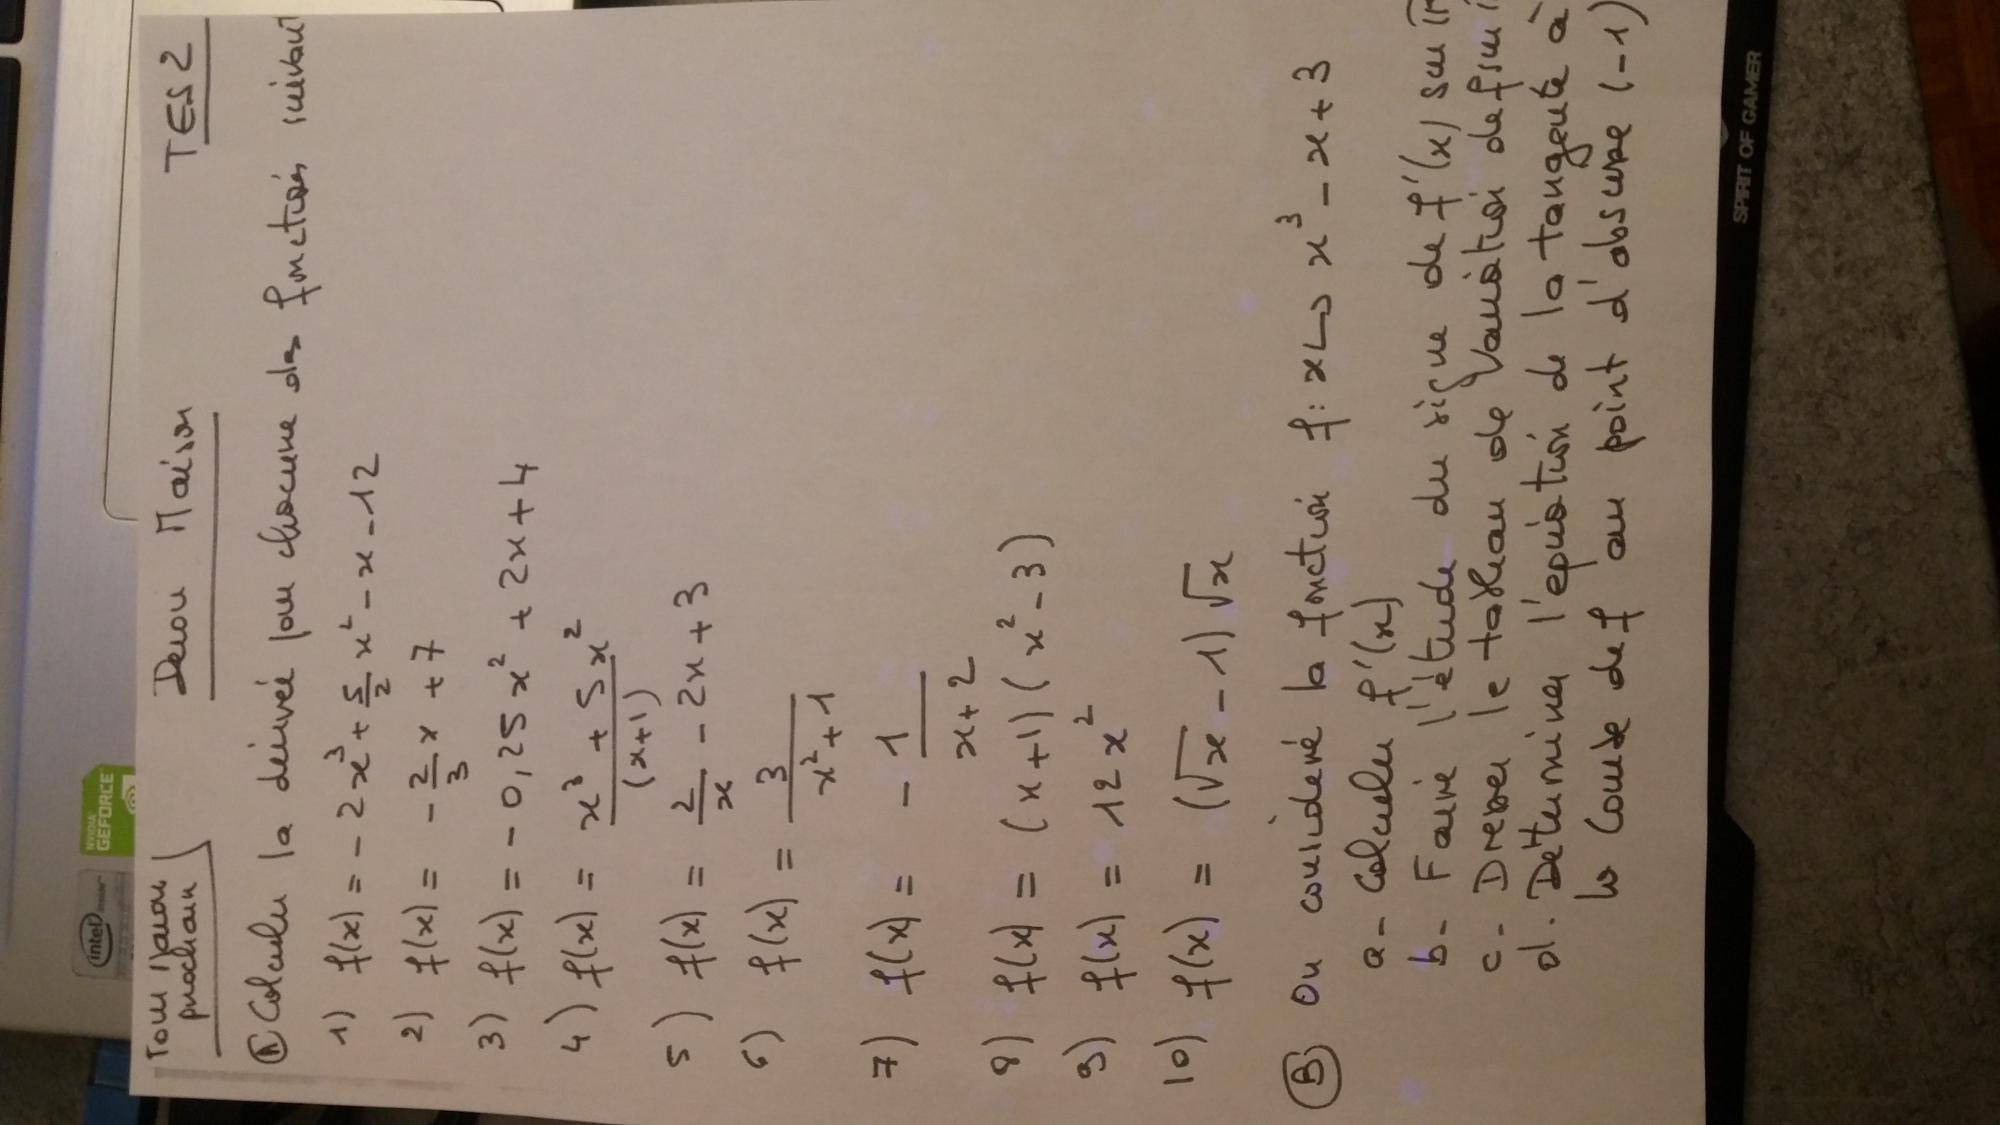 Pour lundi
prochain
Devoir Maison
TES 2
(A) Calculer la dérivée pour chacune des fonctions suivant
1) f(x) = -2x³ + 5/2 x² - x - 12
2) f(x) = -2/3 x + 7
3) f(x) = -0,25x² + 2x + 4
4) f(x) = x³ + 5x² / (x+1)
5) f(x) = 2/x - 2x + 3
6) f(x) = 3 / x² + 1
7) f(x) = - 1 / x+2
8) f(x) = (x+1)(x² - 3)
9) f(x) = 12x²
10) f(x) = (√x - 1)√x
(B) On considère la fonction f: x ↦ x³ - x + 3
a - Calculer f'(x)
b - Faire l'étude du signe de f'(x) sur IR
c - Dresser le tableau de variation de f sur
d. Déterminer l'équation de la tangente à
la courbe de f au point d'abscisse (-1)
intel
inside
NVIDIA
GEFORCE
SPIRIT OF GAMER